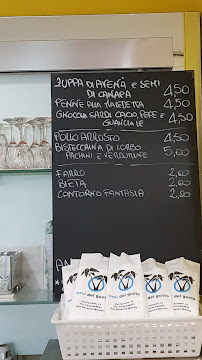 ZUPPA DI AVENA E SEMI
DI CANAPA 4,50
PENNE ALLA 4,50
GNOCCHI SARDI CACIO, PEPE E
GUANCIALE 4,50
POLLO ARROSTO 4,50
BISTECCHINA DI LONZO
PACHINI E VERDURINE 5,00
FARRO 2,00
BIETA 2,00
CONTORNO FANTASIA 2,00
AN
del gusto
del gusto